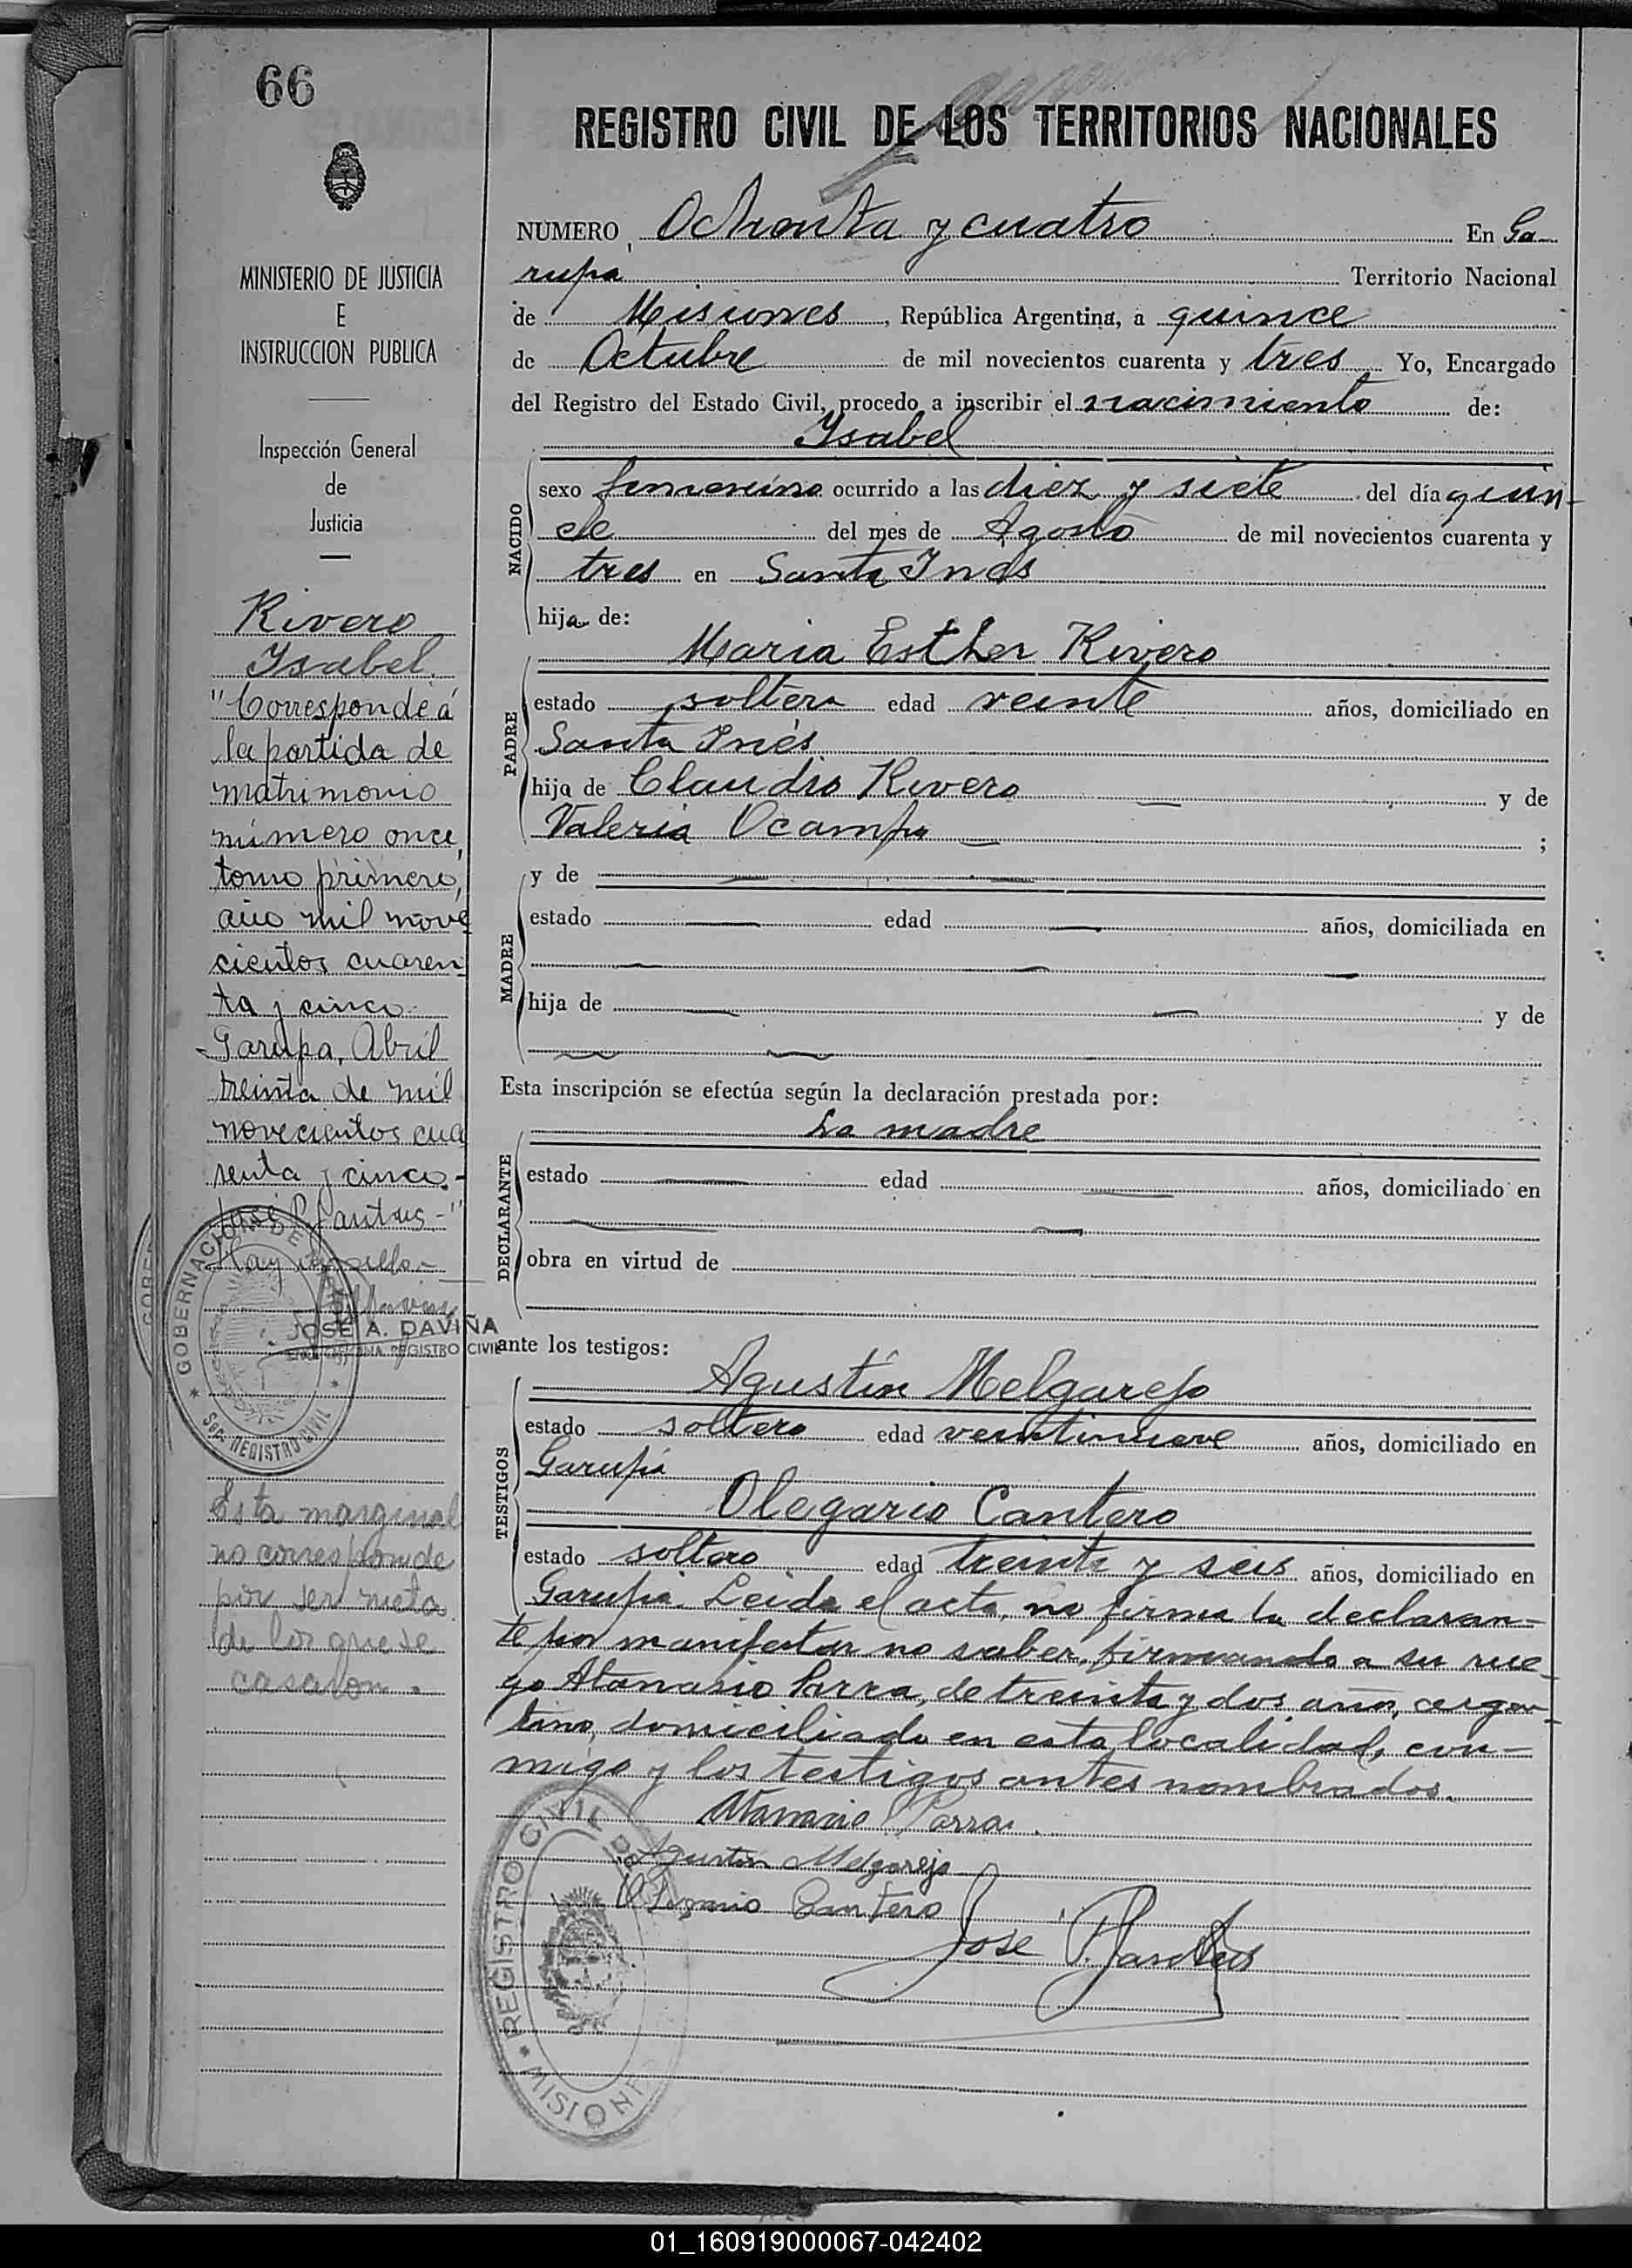 66
REGISTRO CIVIL DE LOS TERRITORIOS NACIONALES
MINISTERIO DE JUSTICIA
E
INSTRUCCION PUBLICA
Inspección General
de
Justicia
Rivero
Ysabel.
"Corresponde á
la partida de
matrimonio
número once,
tomo primero,
año mil nove
cientos cuaren
ta y cinco.
Garupa, Abril
treinta de mil
novecientos cua
renta y cinco.-
José P. Santus-"
Hay un sello-
JOSE A. DAVIÑA
REGISTRO CIVIL
GOBERNACION DE
Sec. REGISTRO CIVIL
Esta marginal
no corresponde
por ser nieta
de los que se
casaron.
NUMERO Ochenta y cuatro En Ga
rupa Territorio Nacional
de Misiones, República Argentina, a quince
de Octubre de mil novecientos cuarenta y tres Yo, Encargado
del Registro del Estado Civil, procedo a inscribir el nacimiento de:
Ysabel
NACIDO
sexo femenino ocurrido a las diez y siete del día quin-
ce del mes de Agosto de mil novecientos cuarenta y
tres en Santa Ines
hija de:
Maria Esther Rivero
PADRE
estado soltera edad veinte años, domiciliado en
Santa Inés
hija de Claudio Rivero y de
Valeria Ocampo ;
y de
MADRE
estado edad años, domiciliada en
hija de y de
Esta inscripción se efectúa según la declaración prestada por:
La madre
DECLARANTE
estado edad años, domiciliado en
obra en virtud de
ante los testigos:
Agustín Melgarejo
TESTIGOS
estado soltero edad veintinueve años, domiciliado en
Garupá
Olegario Cantero
estado soltero edad treinta y seis años, domiciliado en
Garupá. Leida el acta, no firma la declaran-
te por manifestar no saber, firmando a su rue-
go Atanasio Parra, de treinta y dos años, argen-
tino, domiciliado en esta localidad, con-
migo y los testigos antes nombrados.
Atanacio Parra.
Agustin Melgarejo
Olegario Cantero
José P. Santus
REGISTRO CIVIL DE
MISIONE
01_160919000067-042402